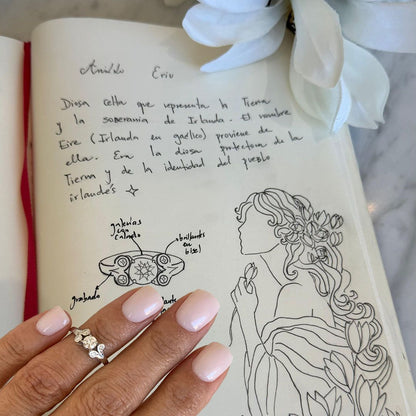 Anillo Eriu
Diosa celta que representa la Tierra
y la soberanía de Irlanda. El nombre
Eire (Irlanda en gaélico) proviene de
ella. Era la diosa protectora de la
Tierra y de la identidad del pueblo
irlandés
galerías
con
calado
brillantes
en
bisel
grabado